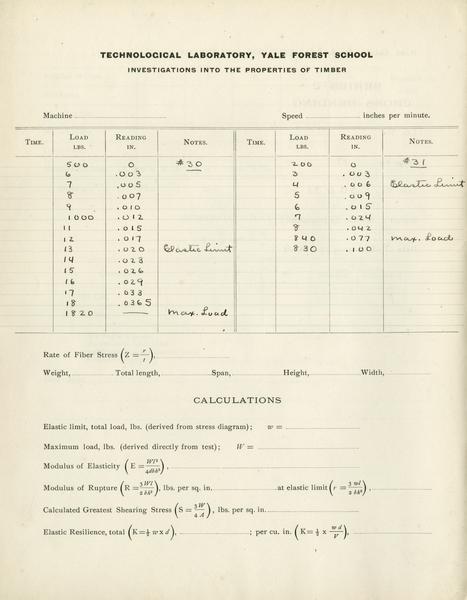 TECHNOLOGICAL LABORATORY, YALE FOREST SCHOOL
INVESTIGATIONS INTO THE PROPERTIES OF TIMBER
Machine Speed inches per minute.
TIME. LOAD LBS. READING IN. NOTES. TIME. LOAD LBS. READING IN. NOTES.
500 0 #30 200 0 #31
6 .003 3 .003
7 .005 4 .006 Elastic Limit
8 .007 5 .009
9 .010 6 .015
1000 .012 7 .024
11 .015 8 .042
12 .017 840 .077 Max. Load
13 .020 Elastic Limit 830 .100
14 .023
15 .026
16 .029
17 .033
18 .0365
1820 — Max. Load
Rate of Fiber Stress (Z = r/t),
Weight, Total length, Span, Height, Width,
CALCULATIONS
Elastic limit, total load, lbs. (derived from stress diagram); w =
Maximum load, lbs. (derived directly from test); W =
Modulus of Elasticity (E = Wl³/4dbh³),
Modulus of Rupture (R = 3Wl/2bh²), lbs. per sq. in. at elastic limit (r = 3wl/2bh²),
Calculated Greatest Shearing Stress (S = 3W/4A), lbs. per sq. in.
Elastic Resilience, total (K = ½ w x d), ; per cu. in. (K = ½ x wd/V),